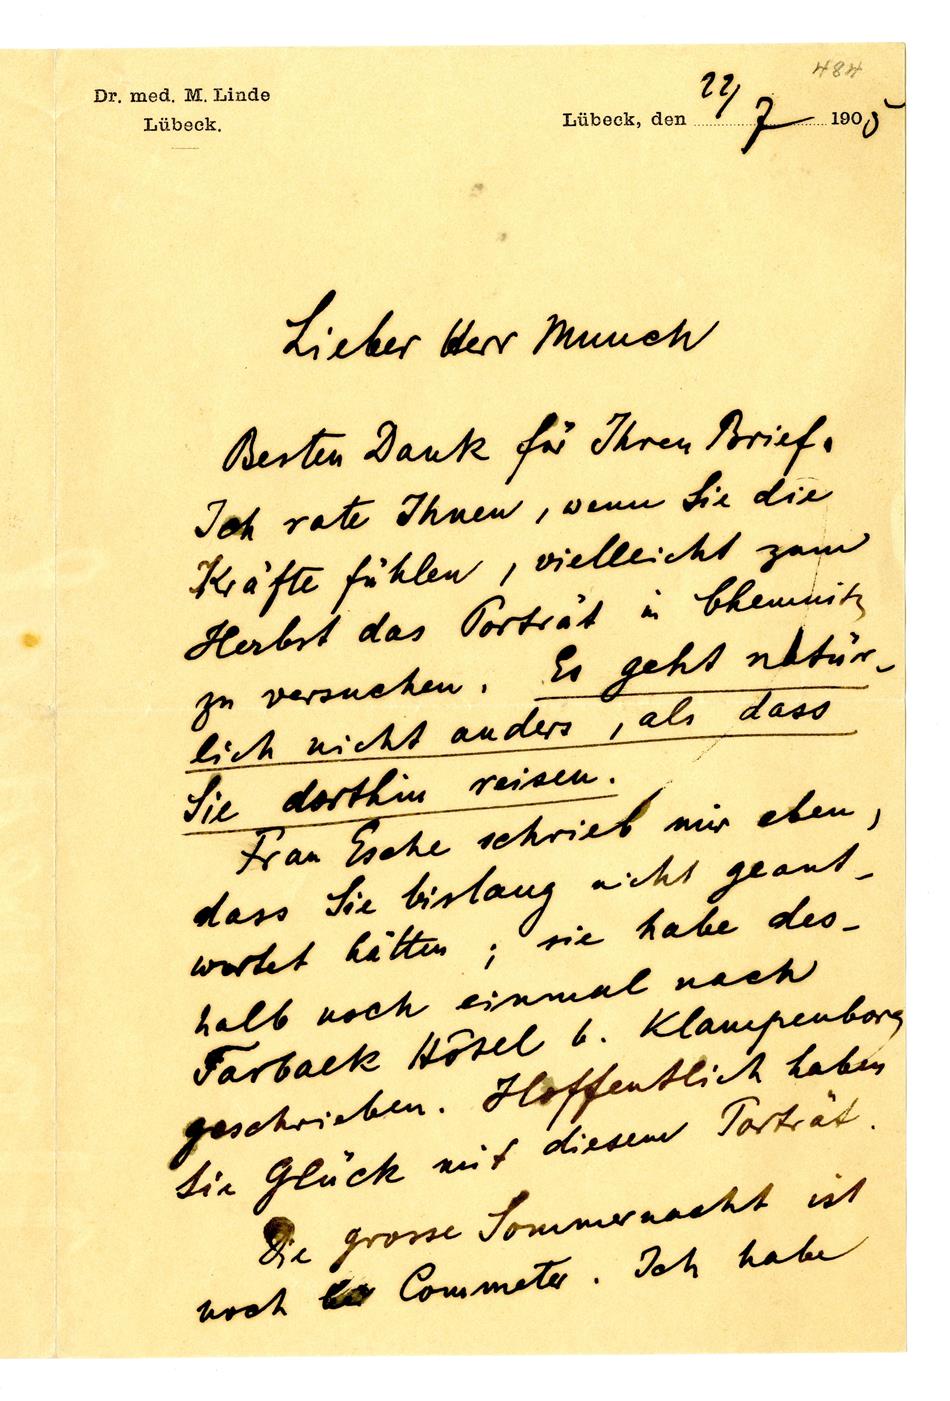 484
Dr. med. M. Linde
Lübeck.
Lübeck, den 22/7 1905
Lieber Herr Munch
Besten Dank für Ihren Brief.
Ich rate Ihnen, wenn Sie die
Kräfte fühlen, vielleicht zum
Herbst das Porträt in Chemnitz
zu versuchen. Es geht natür-
lich nicht anders, als dass
Sie dorthin reisen.
Frau Esche schrieb mir eben,
dass Sie bislang nicht geant-
wortet hätten; sie habe des-
halb noch einmal nach
Tarbaek Hôsel b. Klampenborg
geschrieben. Hoffentlich haben
Sie Glück mit diesem Porträt.
Die grosse Sommernacht ist
noch bei Commeter. Ich habe